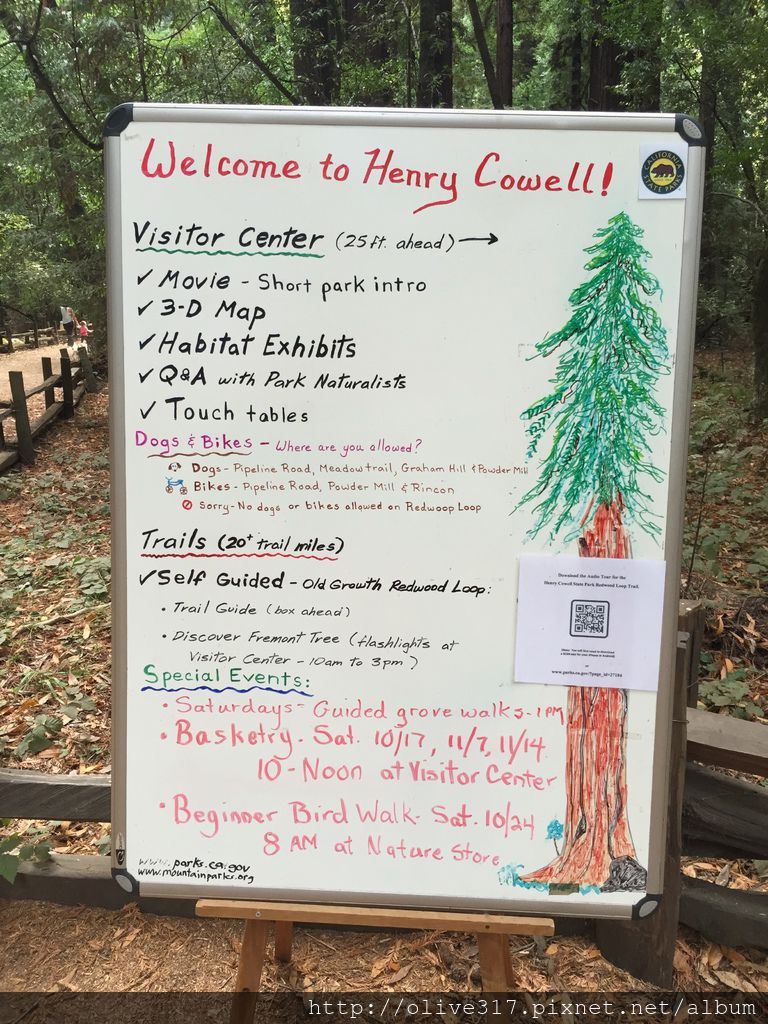 Welcome to Henry Cowell!
CALIFORNIA STATE PARKS
Visitor Center (25 ft. ahead) →
✓ Movie - Short park intro
✓ 3-D Map
✓ Habitat Exhibits
✓ Q&A with Park Naturalists
✓ Touch tables
Dogs & Bikes - Where are you allowed?
Dogs - Pipeline Road, Meadowtrail, Graham Hill & Powder Mill
Bikes - Pipeline Road, Powder Mill & Rincon
Sorry - No dogs or bikes allowed on Redwoop Loop
Trails (20+ trail miles)
✓ Self Guided - Old Growth Redwood Loop:
• Trail Guide (box ahead)
• Discover Fremont Tree (flashlights at
Visitor Center - 10am to 3pm)
Download the Audio Tour for the
Henry Cowell State Park Redwood Loop Trail.
or
www.parks.ca.gov/?page_id=27184
Special Events:
• Saturdays - Guided grove walks - 1 PM
• Basketry - Sat. 10/17, 11/7, 11/14
10 - Noon at Visitor Center
• Beginner Bird Walk - Sat. 10/24
8 AM at Nature Store
www.parks.ca.gov
www.mountainparks.org
http://olive317.pixnet.net/album